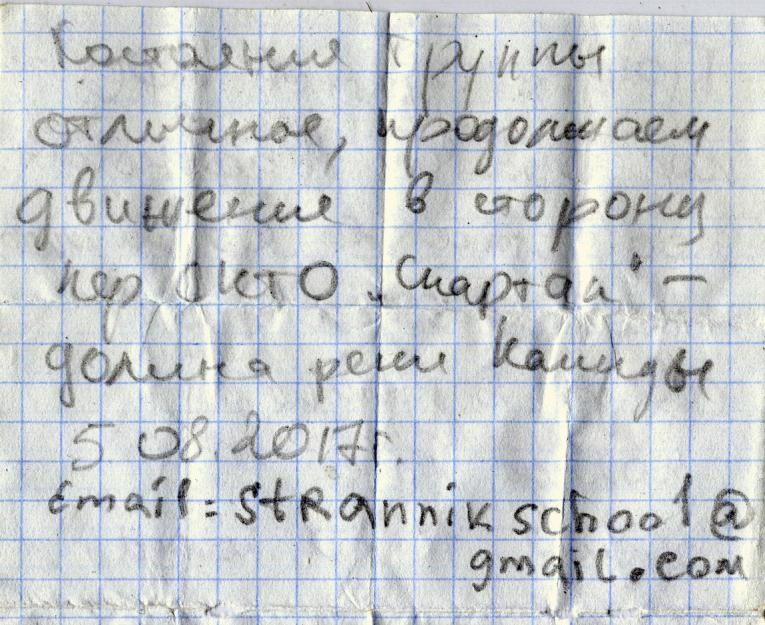 Состояние группы
отличное, продолжаем
движение в сторону
пер. СКТО „Спартак" –
долина реки Каинды
5 08.2017г.
Email = strannik school @
gmail.com